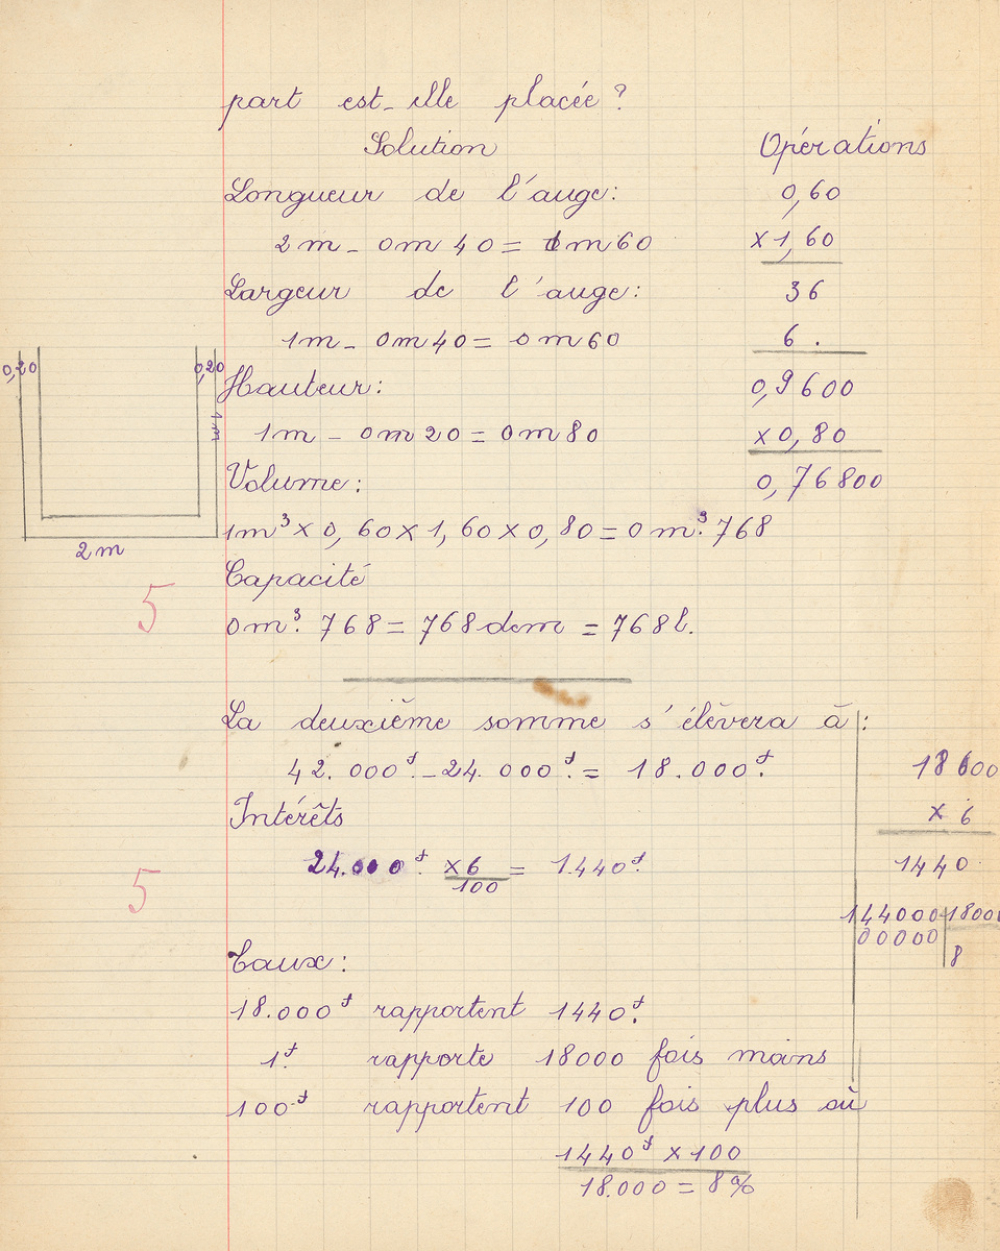 part est-elle placée ?
Solution
Opérations
Longueur de l'auge:
0,60
2m - 0m 40 = 1m60
x 1,60
Largeur de l'auge:
36
1m - 0m40 = 0m60
6 .
0,20
0,20
Hauteur:
0,9600
1m
1m - 0m20 = 0m80
x 0,80
Volume:
0,76800
1m³ x 0,60 x 1,60 x 0,80 = 0m³.768
2m
Capacité
5
0m³. 768 = 768dcm = 768l.
La deuxième somme s'élèvera à :
42.000f. - 24.000f. = 18.000f.
18600
Intérêts
x 6
24.000f. x6 = 1.440f.
100
1440
5
144000 1800
00000 8
Taux:
18.000f rapportent 1440f.
1f. rapporte 18000 fois moins
100f rapportent 100 fois plus où
1440f x 100
18.000 = 8%